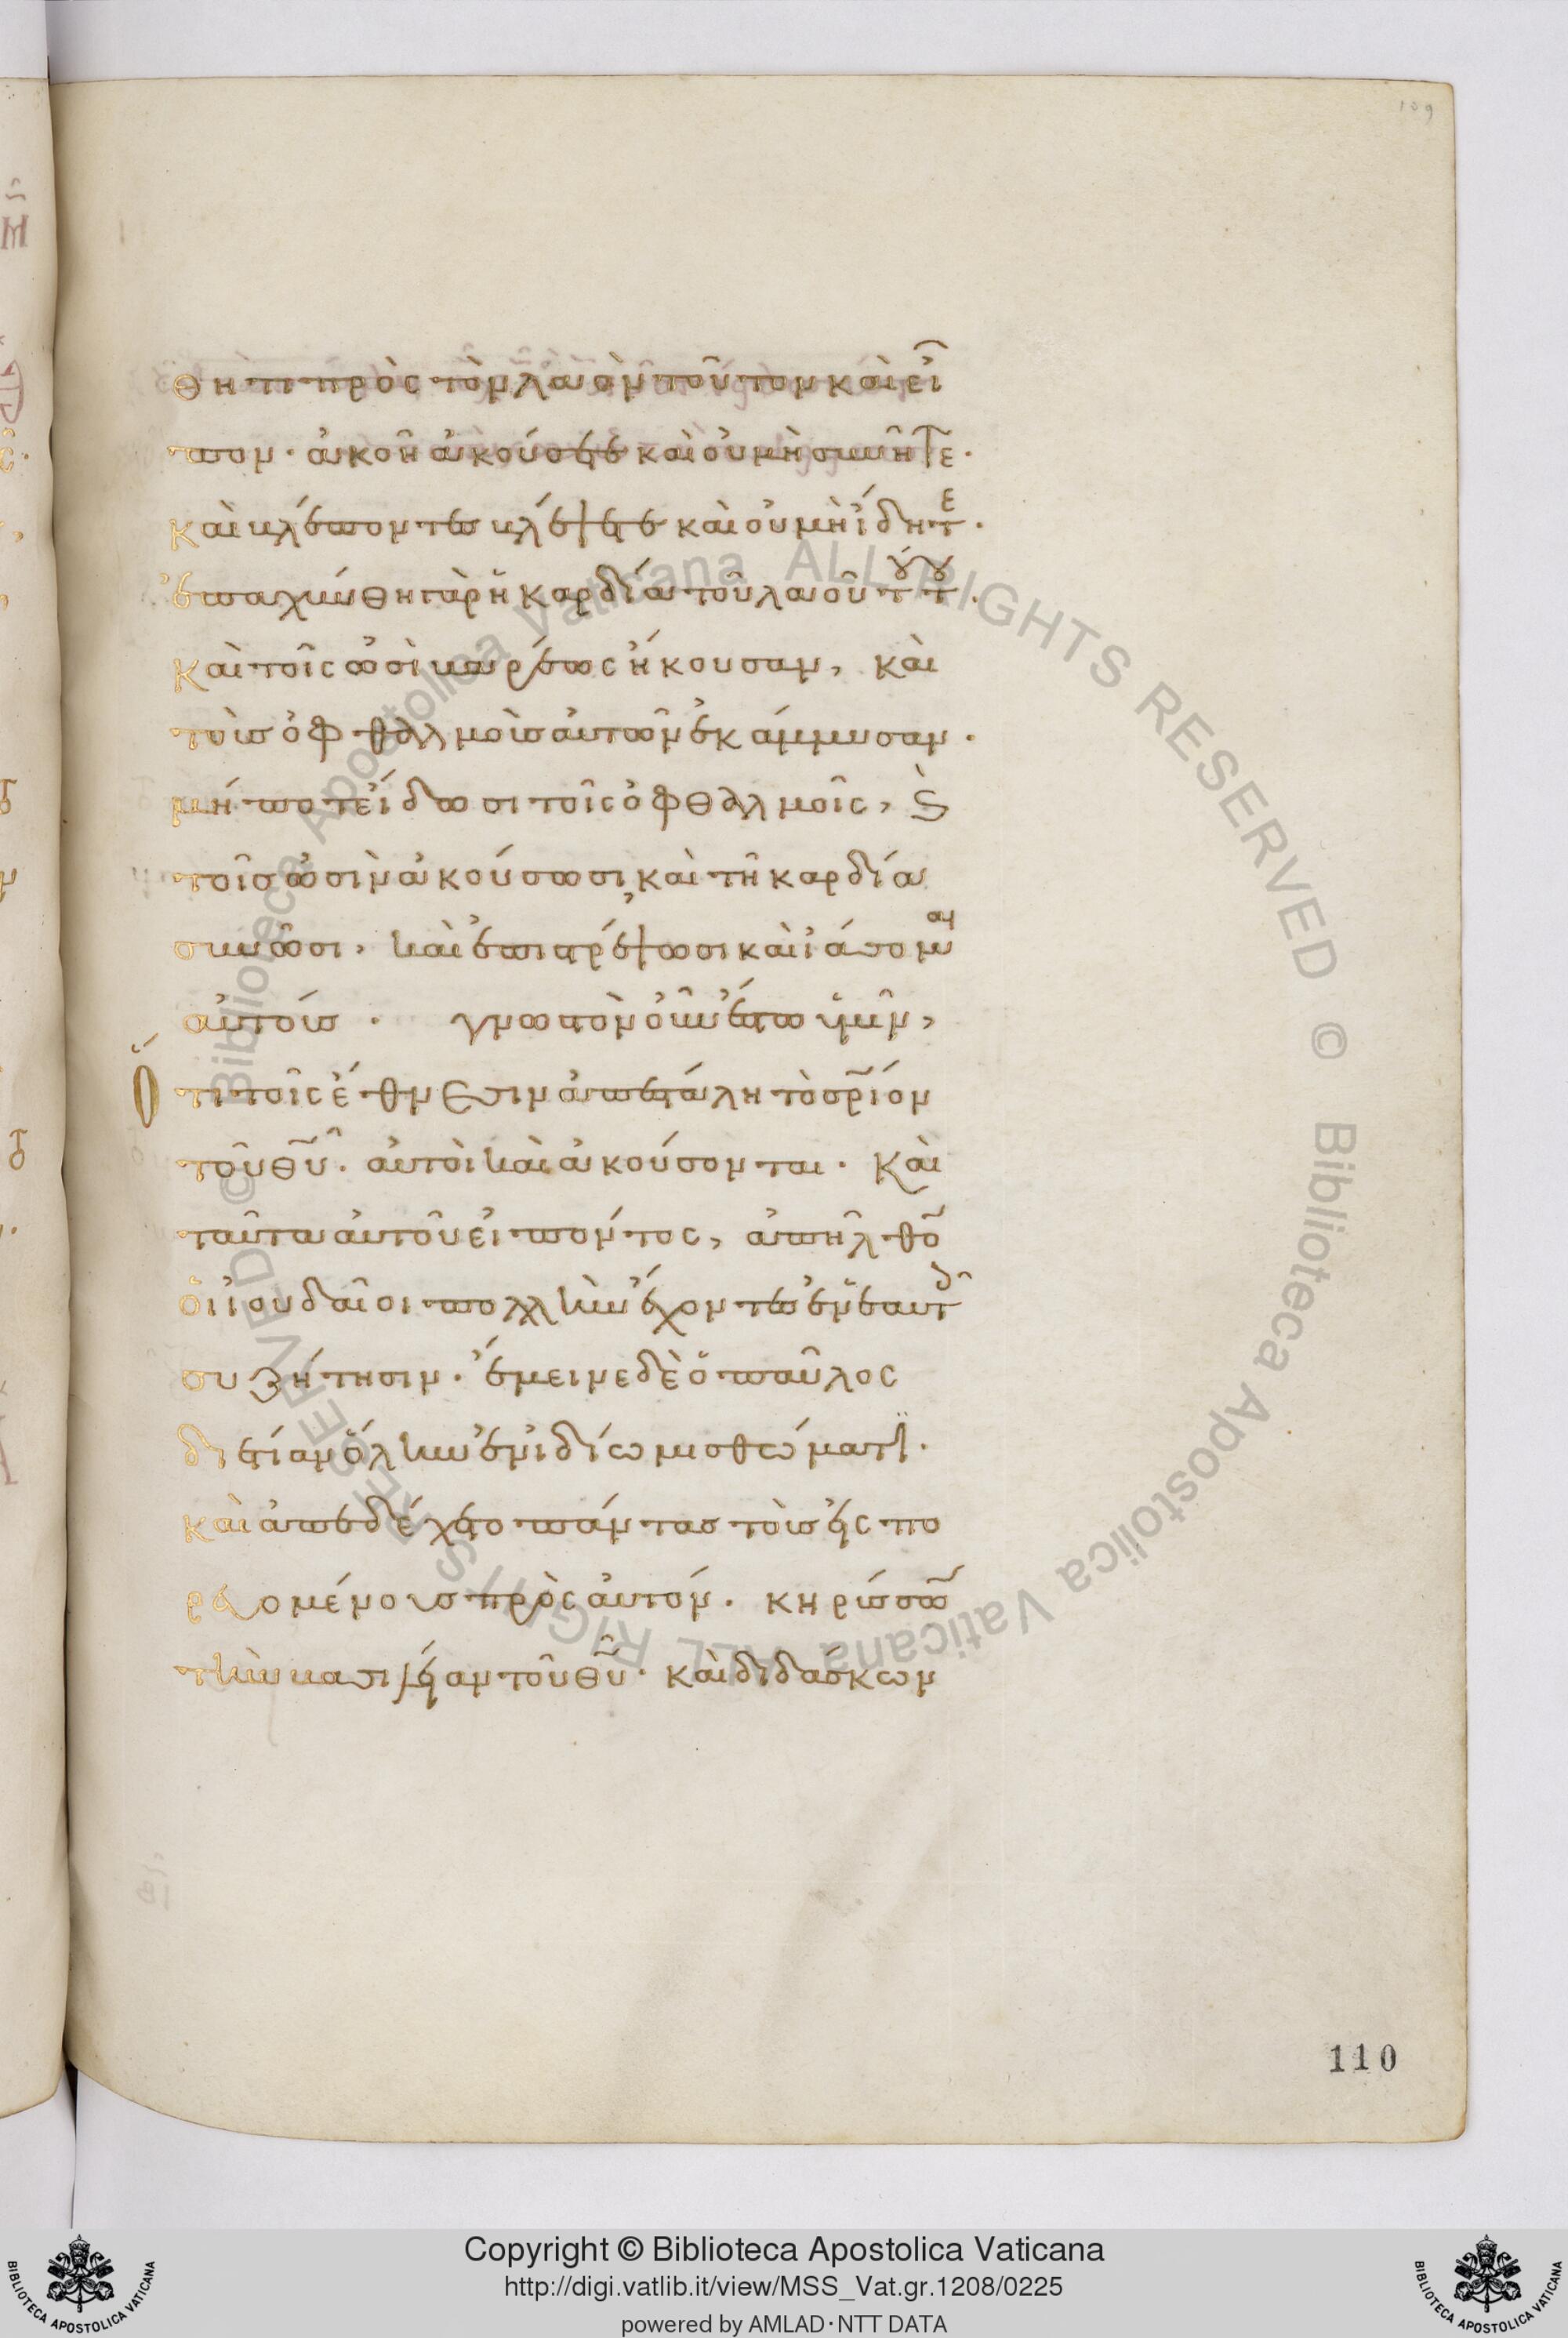 109
θητι πρὸς τὸν λαὸν τοῦτον καὶ εἰ
πον· ἀκοῆ ἀκούσετε καὶ οὐ μὴ συνῆτε·
καὶ βλέποντες βλέψετε καὶ οὐ μὴ ἴδητε·
ἐπαχύνθη γὰρ ἡ καρδία τοῦ λαοῦ τούτου·
καὶ τοῖς ὠσὶ βαρέως ἤκουσαν, καὶ
τοὺς ὀφθαλμοὺς αὐτῶν ἐκάμμυσαν·
μήποτε ἴδωσι τοῖς ὀφθαλμοῖς, ϗ
τοῖς ὠσὶν ἀκούσωσι, καὶ τῆ καρδία
συνῶσι, καὶ ἐπιστρέψωσι καὶ ἰάσομαι
αὐτούς· γνωστὸν οὖν ἔστω ὑμῖν,
ὅτι τοῖς ἔθνεσιν ἀπεστάλη τὸ σ̅ρ̅ιόν
τοῦ θ̅υ̅· αὐτοὶ καὶ ἀκούσονται· Καὶ
ταῦτα αὐτοῦ εἰπόντος, ἀπῆλθον
οἱ ἰουδαῖοι πολλὴν ἔχοντες ἐν ἑαυτοῖς
συζήτησιν· ἔμεινε δὲ ὁ παῦλος
διετίαν ὅλην ἐν ἰδίω μισθώματι·
καὶ ἀπεδέχετο πάντας τοὺς εἰσπο
ρευομένους πρὸς αὐτόν· κηρύσσων
τὴν βασιλείαν τοῦ θ̅υ̅· καὶ διδάσκων
110
Copyright © Biblioteca Apostolica Vaticana
http://digi.vatlib.it/view/MSS_Vat.gr.1208/0225
powered by AMLAD·NTT DATA